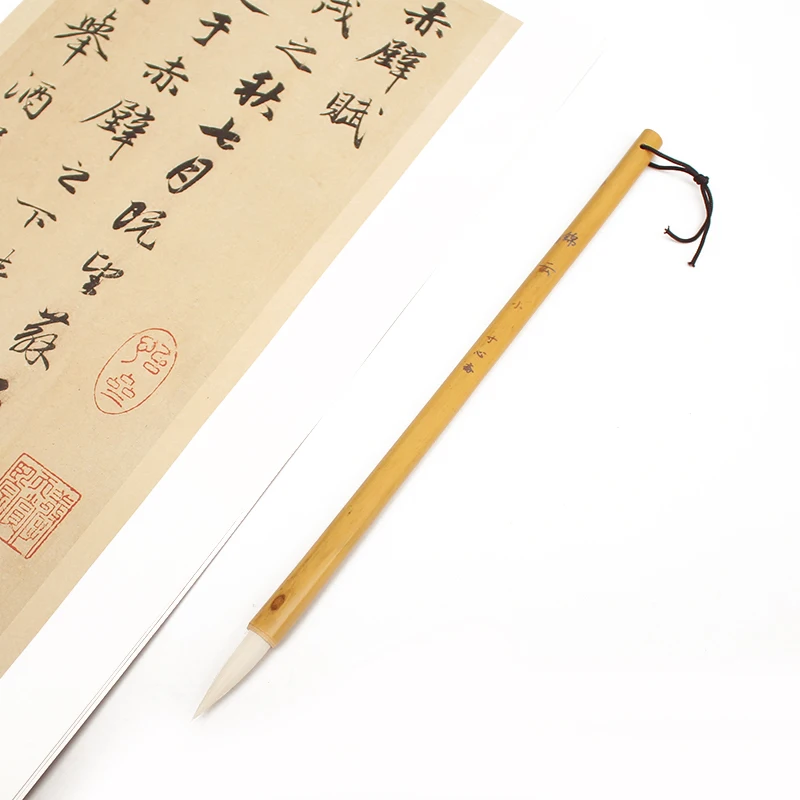 赤壁賦
戌之秋七月既望蘇
于赤壁之下
舉酒
云小 寸心斋